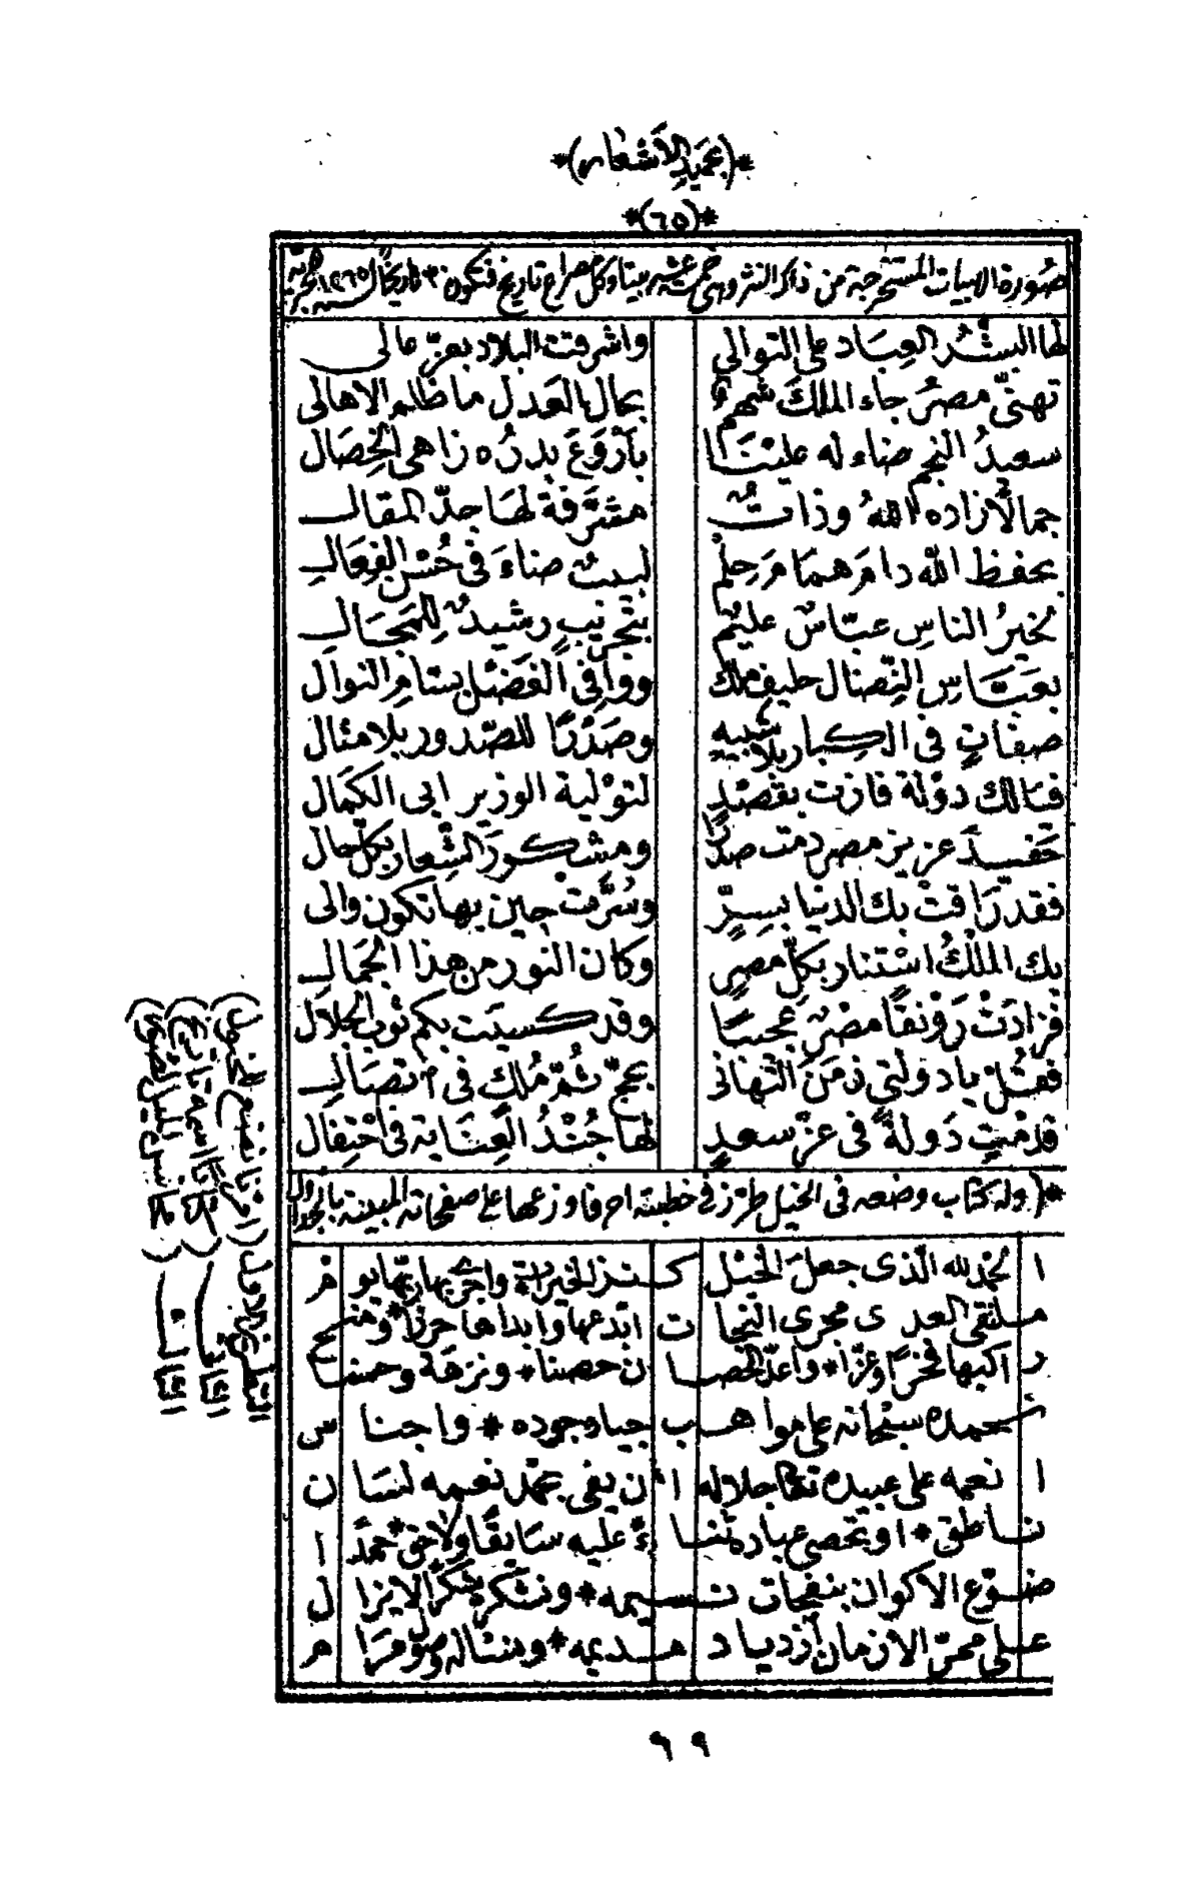 *(بحميد الأشعار)*
*(٦٥)*
صورة الابيات المستخرجة من ذاك النثر وهى خمسة عشر بيتا وكل مصراع تاريخ فتكون ٣٠ تاريخا لسنة ١٢٦٥ هجرية
لها البشرُ العِبَاد على التوالى واشرقت البلاد بعزّ عالى
تهنّى مصرُ جاء الملكَ شهمٌ بجمال العدل ما ظلم الاهالى
سعيدُ النجم ضاء له علينَا بأرْوَعَ بدرُه زاهى الخِصَال
جمالًا زاده اللهُ وذاتٌ مشرّفة لهَا جدّ المقالِ
بحفظ الله دامَ همامَ حِلمٍ لبيتٌ ضاءَ فى حُسْن الفِعَالِ
بخيرُ الناسِ عبّاسٌ عليمٌ بتجريبٍ رشيدٌ لِلمَجَالِ
بعبَّاسِ النِّصَال حليف ملك ووافِى الفَضْل بسّامِ النوال
صفاتٍ فى الكِبار بلا شبيهٍ وصَدْرًا للصّدور بلا مثال
فيالك دوْلة فازت بقصْدٍ لتوْلية الوزير ابى الكمَال
حَفيدَ عزيز مصر دمت صدرًا ومشكورَ الشِّعار بكلّ حال
فقد رَاقتْ بك الدنيا بسِرٍّ وسُرَّت حين بها تكون والى
بك الملكُ اسْتنار بكلّ مصرٍ وكان النور من هذا الجَمالِ
فزادَتْ رَوْنقًا مصْرٌ عجيبًا وقد كسيَت بكم ثوبَ الجلال
فقُلْ يا دولتى زمَنَ التهانى بعجّ ثُمّ مُلك فى انتصَالِ
قدمْتِ دَولةً فى عزّ سعدٍ لهَا جُنْدُ العِنَاية فى احْتِفال
*(وله كتاب وضعه فى الخيل طرّز فى خطبته احرفا وزعها على صفحاته المبينة بالجداول
ا لحمد لله الّذى جعلَ الخيْل كـنز الخيرات واجرى بها ربّها يوم
ملتقى العدى مجرى النجات ابْدعها وابداها حرزًا* ومنح
راكبها فخرًا وعزّا* واعدّ الخصان حصنا* ونزهَة وحسنا
نحمده سبْحانه على مواهب جياد جوده* واجناس
انعمه على عبيده تعَالى جلاله ان يفى بحمْد نعمه لسَان
ناطق* او يحصى عباده ثناءً عليه سَابقًا ولاحق* حمدًا
ضوّع الاكوان بنفحات نسيمه* ونشْكره شكرًا لايزال
على ممرّ الازمان ازدياد مديمه* ونسْاله وصول مرَام
التطريز الاول (احرفا نصنع الخيول)
الثانى (كتابا اسمه قانع)
الثالث (عانس الليل الضوى)
٩٩